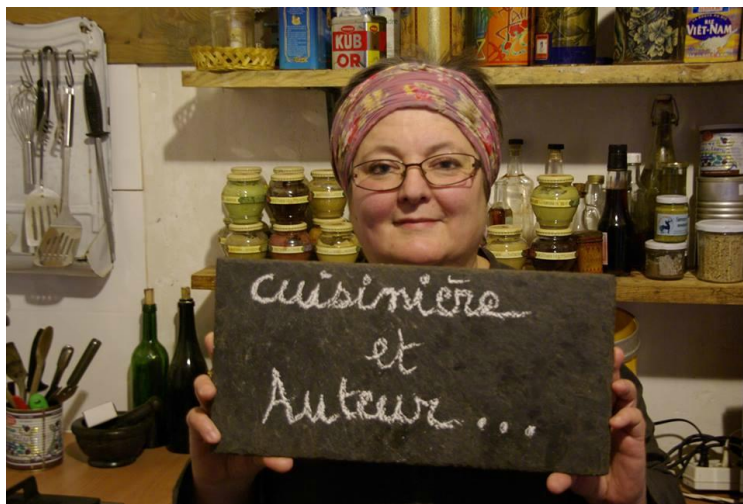 KUB
OR
VIÊT-NAM
cuisinière
et
Auteur...